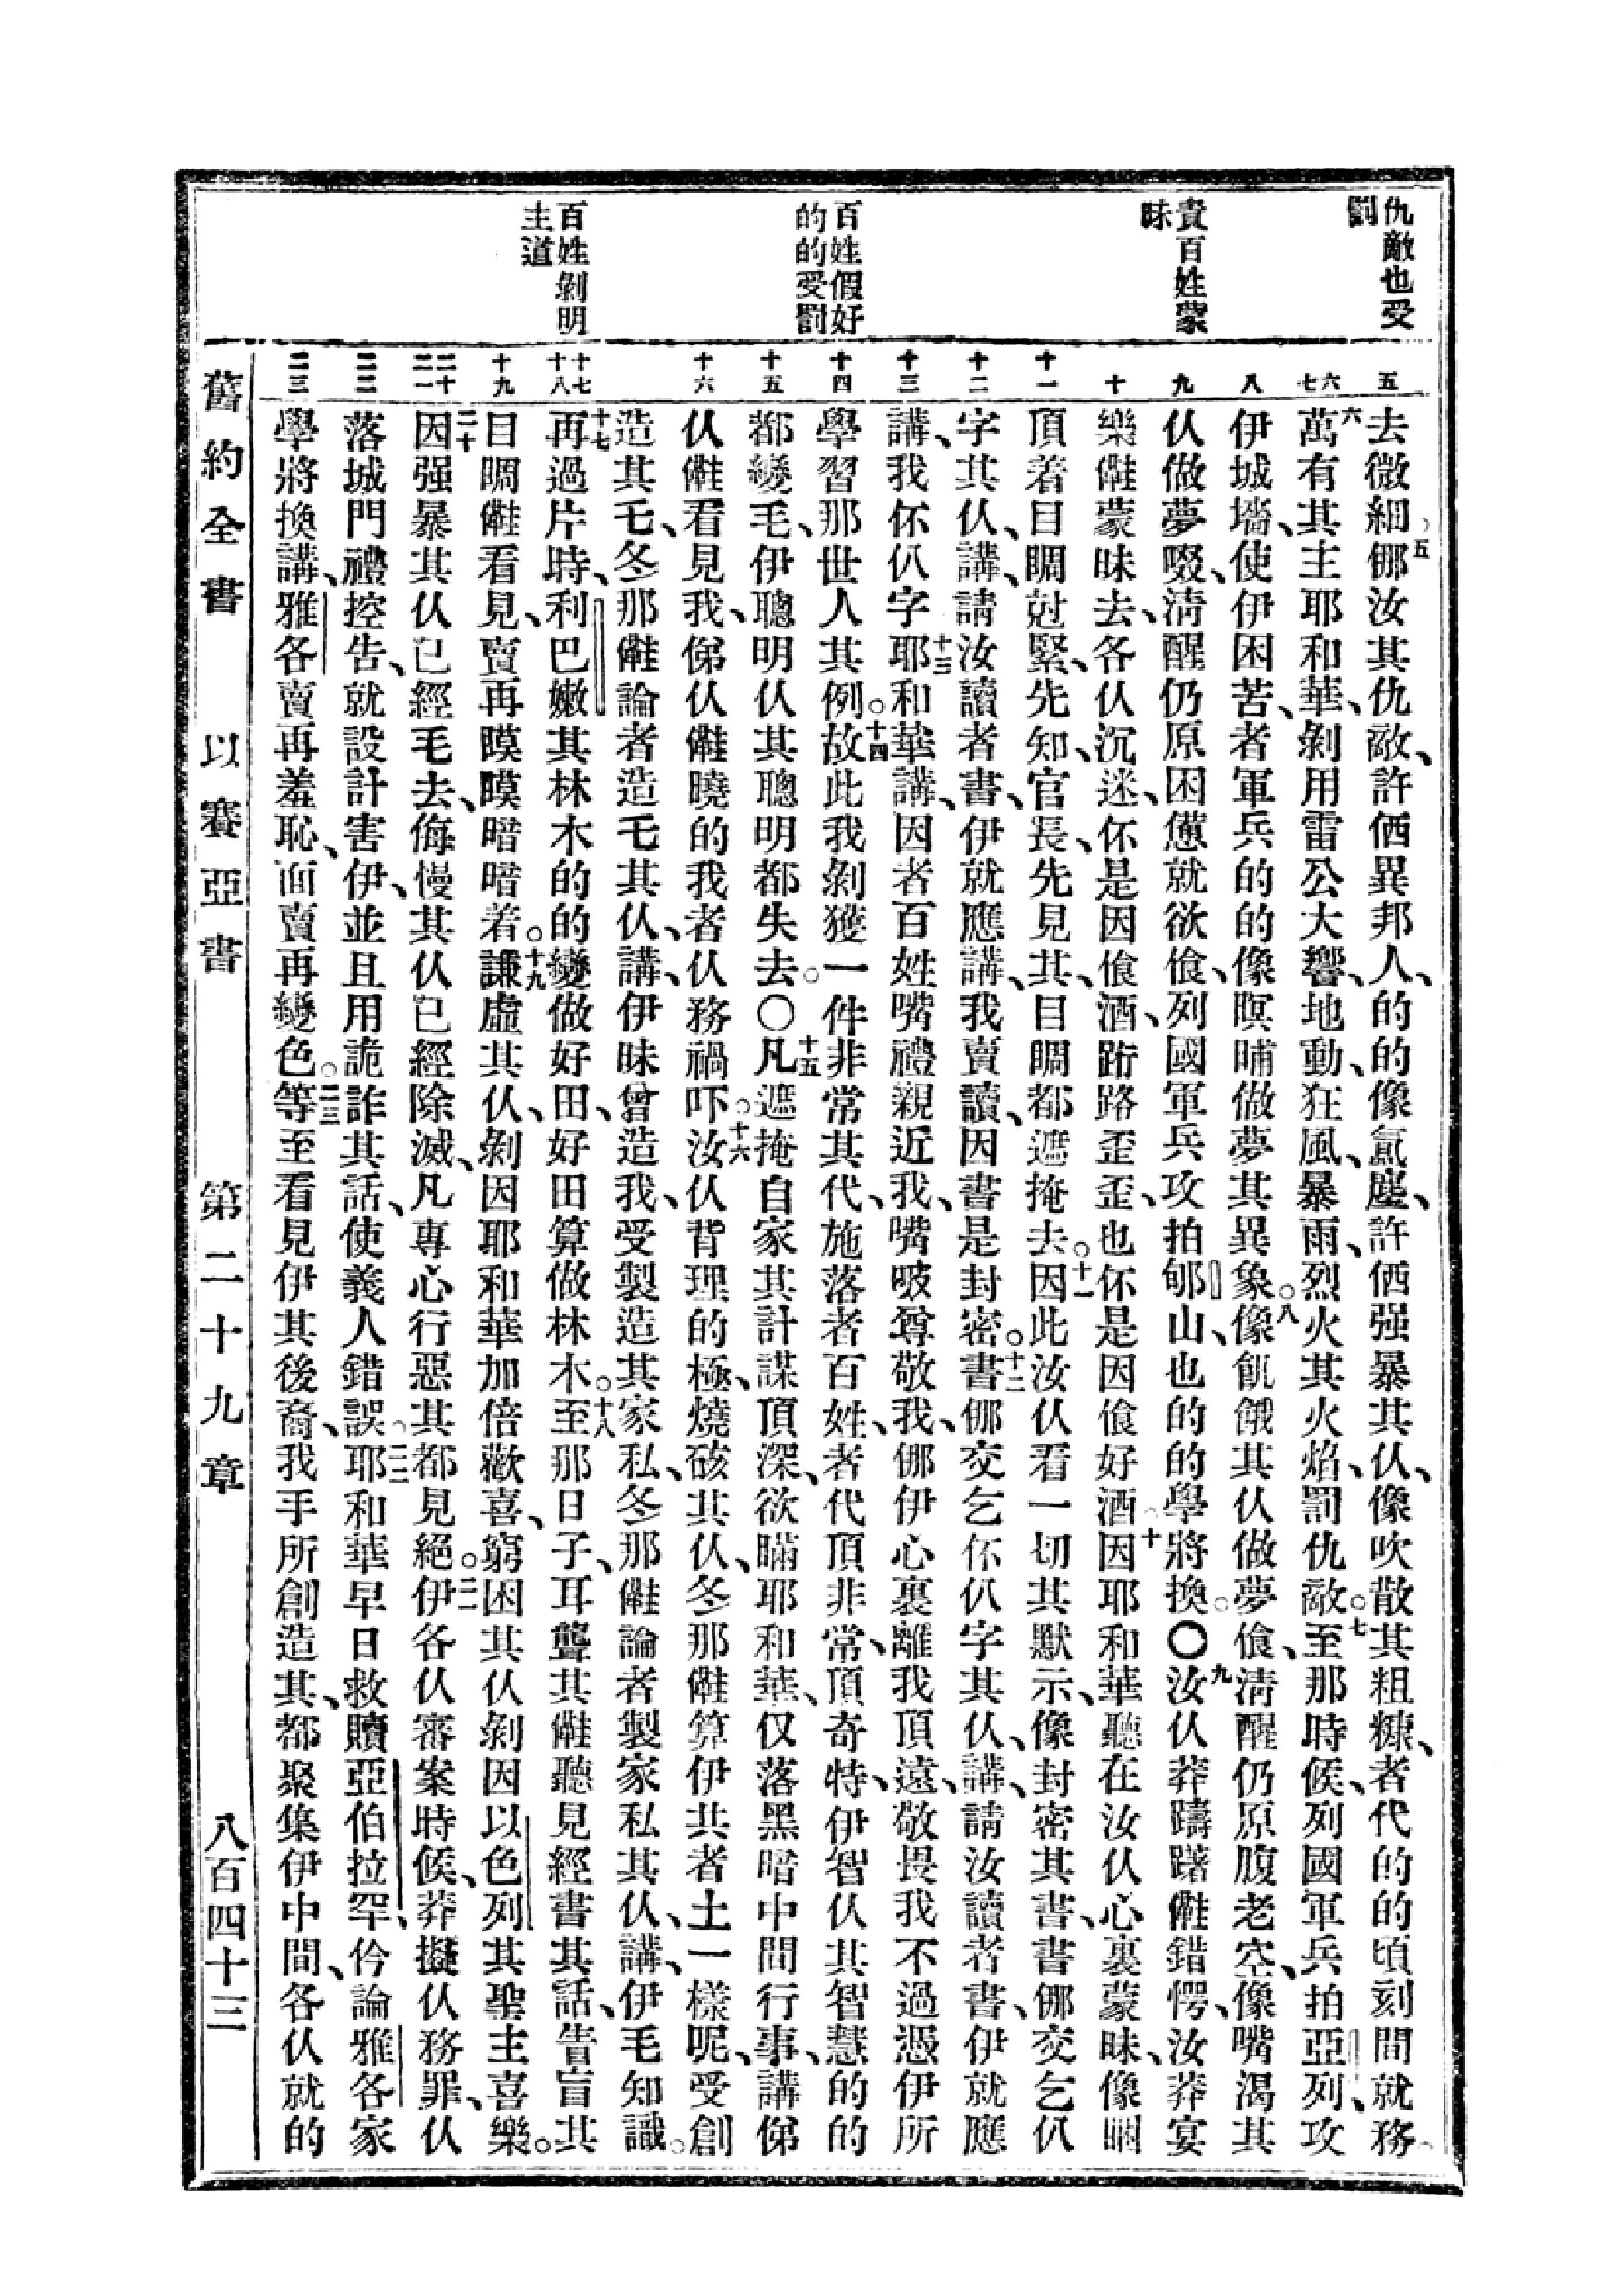 仇敵也受
罰
責百姓蒙
昧
百姓假好
的的受罰
百姓剝明
主道
五
六
七
八
九
十
十一
十二
十三
十四
十五
十六
十七
十八
十九
二十
二一
二二
二三
去微細。五㑚汝其仇敵、許価異邦人、的的像𤋮塵、許価强暴其仈、像吹散其粗糠、者代的的頃刻間就務。
六萬有其主耶和華、剝用雷公大響、地動、狂風、暴雨、烈火其火焰、罰仇敵。七至那時候、列國軍兵拍亞列、攻
伊城墻、使伊困苦、者軍兵的的像暝晡做夢其異象。八像飢餓其仈做夢。食、淸醒仍原腹老空、像嘴渴其
仈做夢啜、淸醒仍原困憊就欲飧、列國軍兵攻拍郇山、也的的學將換。〇九汝仈莽躊躇㒕錯愕、汝莽宴
樂㒕蒙昧去、各仈沉迷、伓是因飧酒、跨路歪歪、也伓是因飧好酒。十因耶和華聽在汝仈心裏蒙昧、像睏
頂着目睭尅緊、先知、官長、先見其、目睭都遮掩去。十一因此汝仈看一切其默示、像封密其書、書㑚交乞仈
字其仈、講、請汝讀者書、伊就應講、我賣讀、因書是封密。十二書㑚交乞伓仈字其仈、講、請汝讀者書、伊就應
講、我伓仈字。十三耶和華講、因者百姓嘴禮親近我、嘴唆尊敬我、㑚伊心裏離我頂遠、敬畏我不過憑伊所
學習那世人其例。十四故此我剝獲一件非常其代、施落者百姓、者代頂非常、頂奇特、伊智仈其智慧的的
都變毛、伊聰明仈其聰明都失去。〇十五凡遮掩自家其計謀頂深、欲瞞耶和華、仅落黑暗中間行事、講俤
仈㒕看見我、俤仈㒕曉的我者仈務禍吓。十六汝仈背理的極、燒硋其仈、冬那㒕算伊共者土一樣呢、受創
造其乇、冬那㒕論者造乇其仈、講、伊昧曾造我、受製造其家私、冬那㒕論者製家私其仈、講、伊毛知識。
十七再過片時、利巴嫩其林木的的變做好田、好田算做林木。十八至那日子、耳聾其㒕聽見經書其話、靑盲其
目睭㒕看見、賣再瞙瞙暗暗着。十九謙虛其仈、剝因耶和華加倍歡喜、窮困其仈剝因以色列其聖主喜樂。
二十因强暴其仈已經毛去、侮慢其仈已經除滅、凡專心行惡其都見絕。二一伊各仈審案時候、莽擬仈務罪、仈
落城門禮控告、就設計害伊、並且用詭詐其話、使義人錯誤。二二耶和華早日救贖亞伯拉罕、仱論雅各家
學將換講、雅各賣再羞恥、面賣再變色。二三等至看見伊其後裔、我手所創造其、都聚集伊中間、各仈就的
舊約全書　以賽亞書　第二十九章　八百四十三